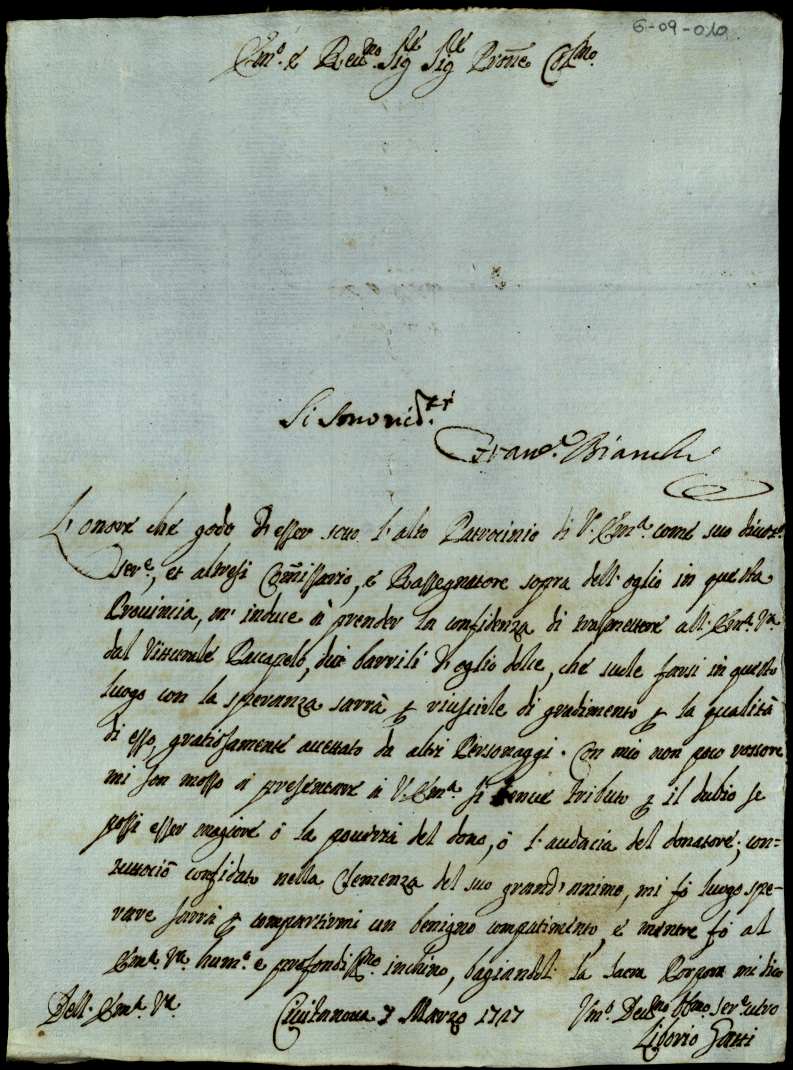 6-09-010
Em.º e Reu.mo Sig.re Sig.re Prōne Col.mo
Si sono ric.ti
Fran.co Bianchi
L'onore che godo di esser sotto l'alto Patrocinio di V. Em.a come suo diuot.o
ser.e, et altresi Com̄issario, e Rassegnatore sopra dell'oglio in questa
Prouincia, m'induce à prender la confidenza di trasmettere all'Em.a V.a
dal Vitturale Paccapelo, due barrili d'oglio dolce, che suole farsi in questo
luogo con la speranza sarrà p riuscirle di gradimento p la qualità
di esso, gratiosamente accettato da altri Personaggi. Con mio non poco rossore
mi son mosso à presentare à V. Em.a si tenue tributo p il dubio se
possi esser magiore ò la pouertà del dono, ò l'audacia del donatore; con=
tuttociò confidato nella Clemenza del suo grand'animo, mi fò luogo spe-
rare sarrà p compartirmi un benigno compatimento, e mentre fò al
Em.a V.a hum.e e profondiss.mo inchino, bagiandol' la sacra Porpora mi dico
Dell'Em.a V.a
Ciuitanoua 7 Marzo 1727
Vm.o Deu.mo Obl.mo ser.e uero
Liborio Gatti